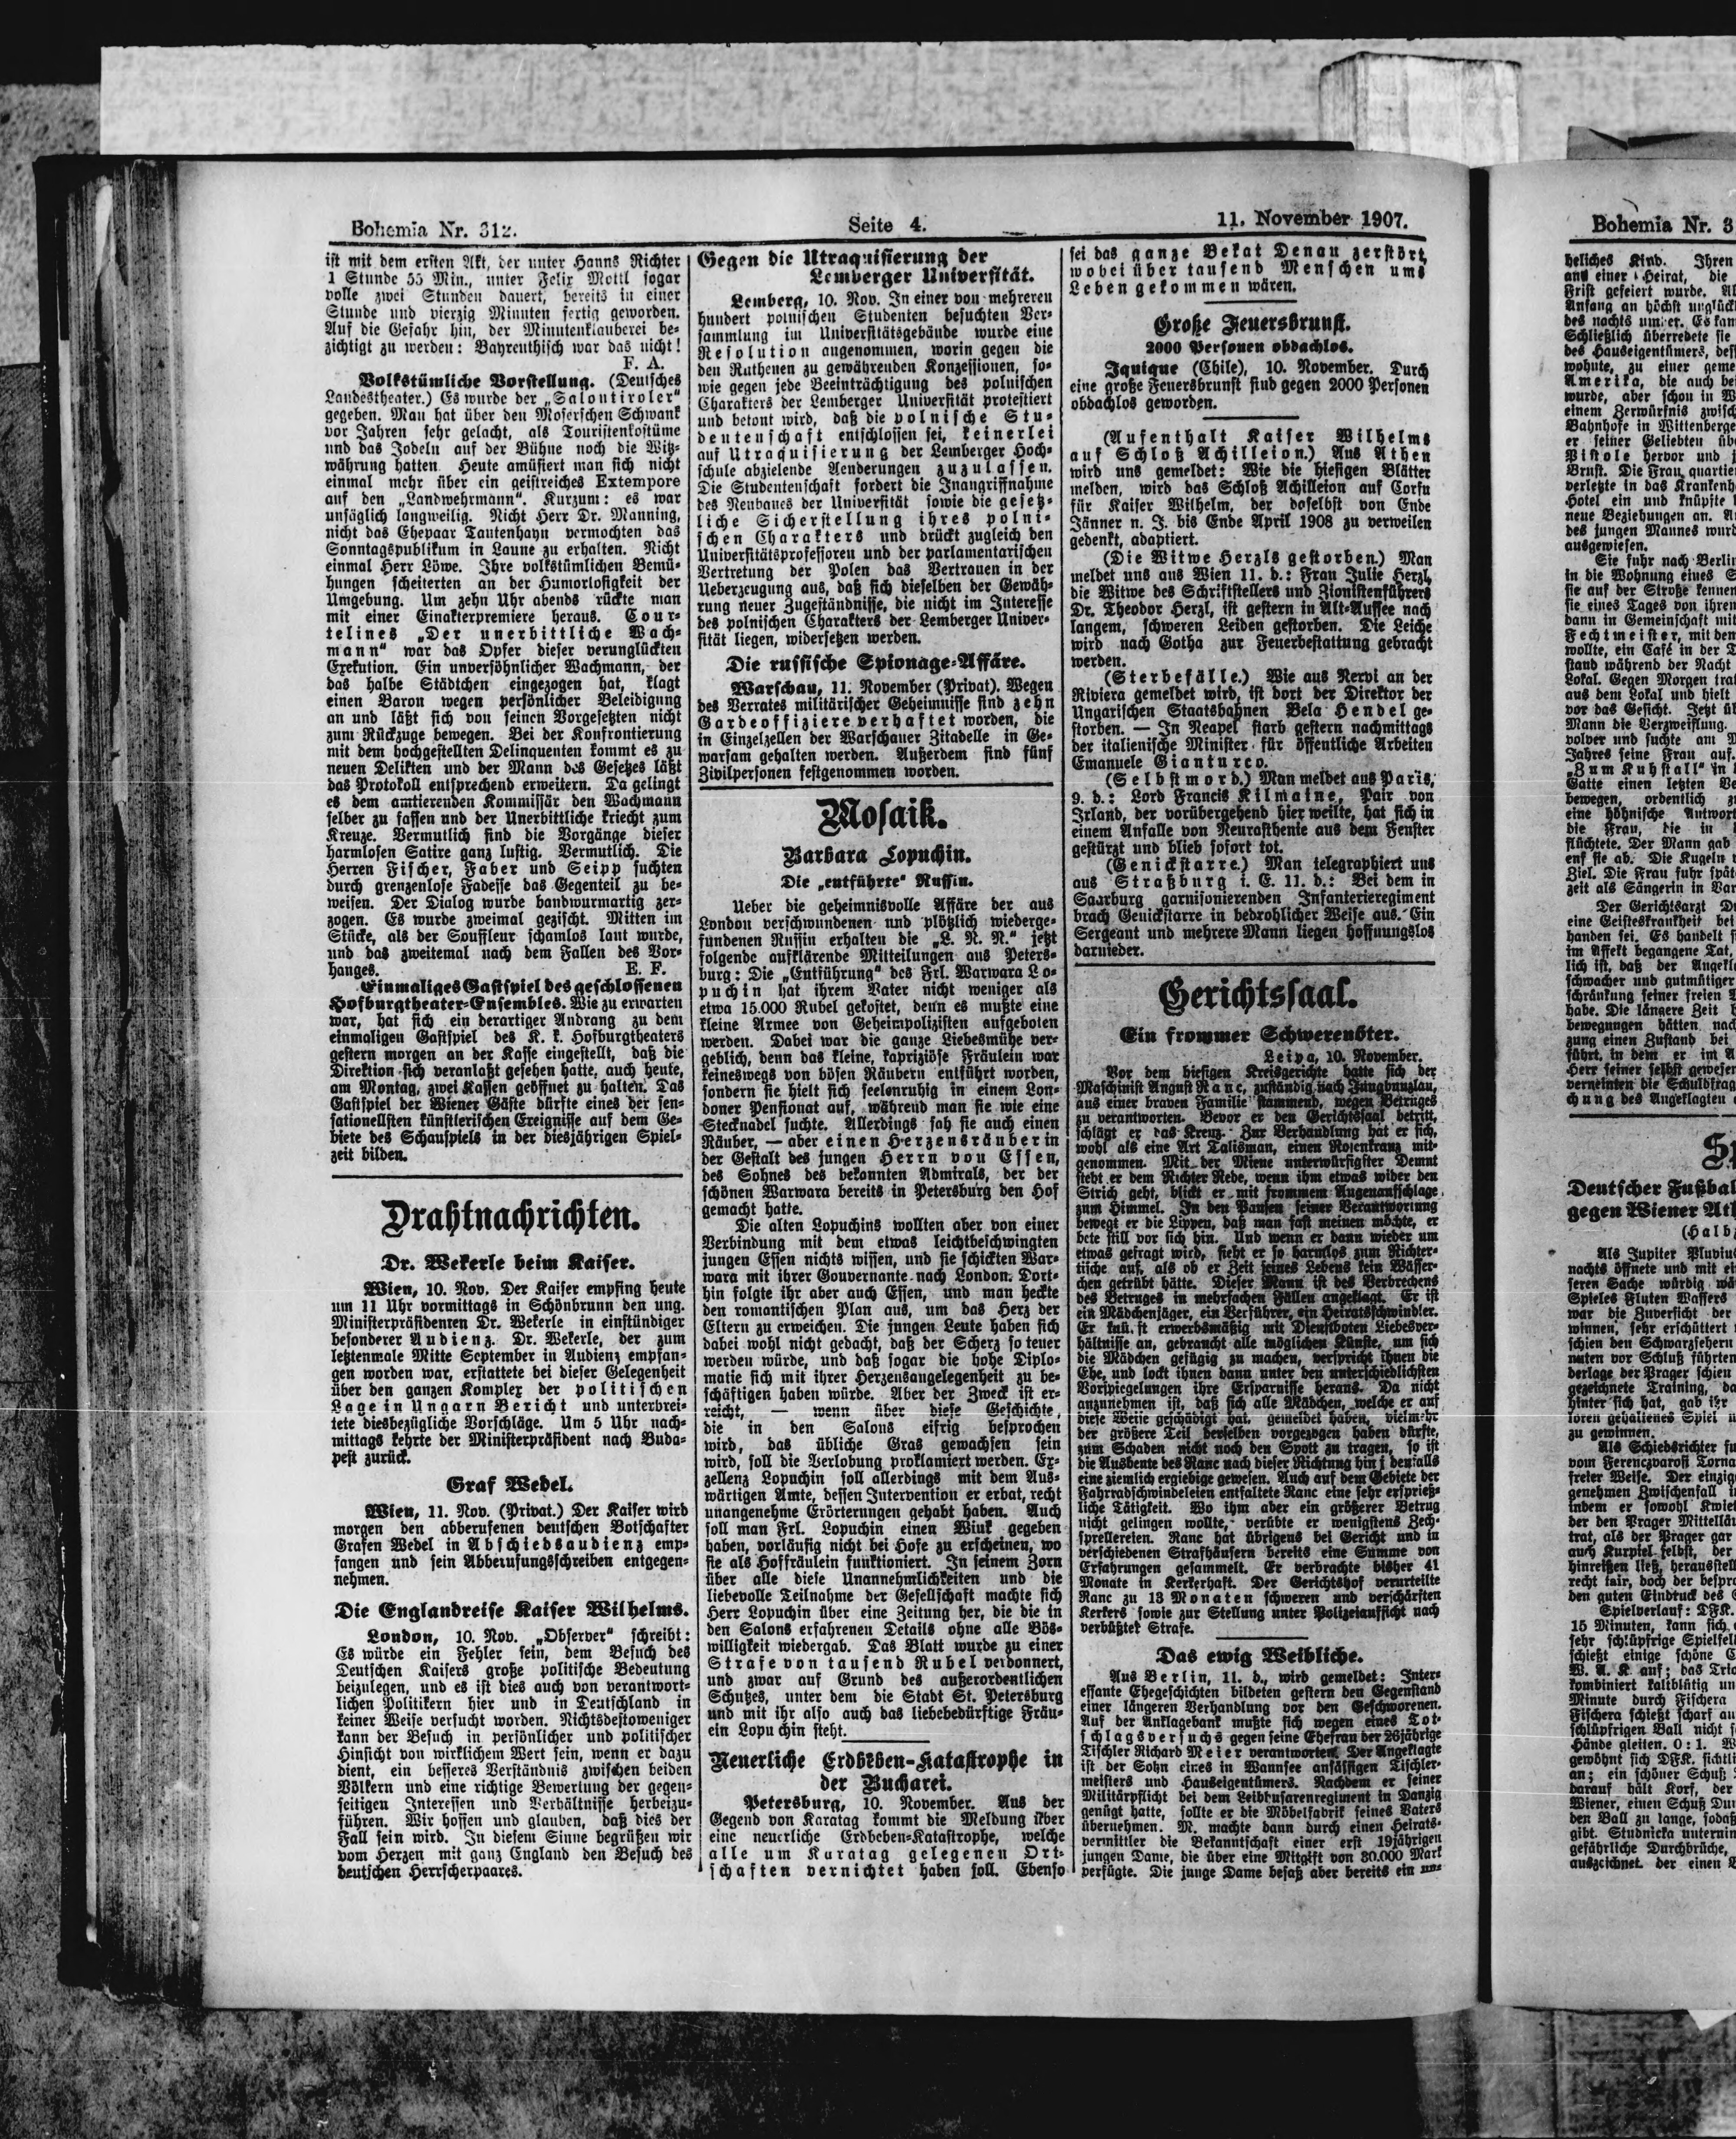 Bohemia Nr. 312.
Seite 4.
11. November 1907.
ist mit dem ersten Akt, der unter Hanns Richter
1 Stunde 55 Min., unter Felix Mottl sogar
volle zwei Stunden dauert, bereits in einer
Stunde und vierzig Minuten fertig geworden.
Auf die Gefahr hin, der Minutenklauberei be-
zichtigt zu werden: Bayreuthisch war das nicht!
F. A.
Volkstümliche Vorstellung. (Deutsches
Landestheater.) Es wurde der „Salontiroler“
gegeben. Man hat über den Moserschen Schwank
vor Jahren sehr gelacht, als Touristenkostüme
und das Jodeln auf der Bühne noch die Witz-
währung hatten. Heute amüsiert man sich nicht
einmal mehr über ein geistreiches Extempore
auf den „Landwehrmann“. Kurzum: es war
unsäglich langweilig. Nicht Herr Dr. Manning,
nicht das Ehepaar Tautenhayn vermochten das
Sonntagspublikum in Laune zu erhalten. Nicht
einmal Herr Löwe. Ihre volkstümlichen Bemü-
hungen scheiterten an der Humorlosigkeit der
Umgebung. Um zehn Uhr abends rückte man
mit einer Einakterpremiere heraus. Cour-
telines „Der unerbittliche Wach-
mann“ war das Opfer dieser verunglückten
Exekution. Ein unversöhnlicher Wachmann, der
das halbe Städtchen eingezogen hat, klagt
einen Baron wegen persönlicher Beleidigung
an und läßt sich von seinen Vorgesetzten nicht
zum Rückzuge bewegen. Bei der Konfrontierung
mit dem hochgestellten Delinquenten kommt es zu
neuen Delikten und der Mann des Gesetzes läßt
das Protokoll entsprechend erweitern. Da gelingt
es dem amtierenden Kommissär den Wachmann
selber zu fassen und der Unerbittliche kriecht zum
Kreuze. Vermutlich sind die Vorgänge dieser
harmlosen Satire ganz lustig. Vermutlich. Die
Herren Fischer, Faber und Seipp suchten
durch grenzenlose Fadesse das Gegenteil zu be-
weisen. Der Dialog wurde bandwurmartig zer-
zogen. Es wurde zweimal gezischt. Mitten im
Stücke, als der Souffleur schamlos laut wurde,
und das zweitemal nach dem Fallen des Vor-
hanges. E. F.
Einmaliges Gastspiel des geschlossenen
Hofburgtheater-Ensembles. Wie zu erwarten
war, hat sich ein derartiger Andrang zu dem
einmaligen Gastspiel des K. k. Hofburgtheaters
gestern morgen an der Kasse eingestellt, daß die
Direktion sich veranlaßt gesehen hatte, auch heute,
am Montag, zwei Kassen geöffnet zu halten. Das
Gastspiel der Wiener Gäste dürfte eines der sen-
sationellsten künstlerischen Ereignisse auf dem Ge-
biete des Schauspiels in der diesjährigen Spiel-
zeit bilden.
Drahtnachrichten.
Dr. Wekerle beim Kaiser.
Wien, 10. Nov. Der Kaiser empfing heute
um 11 Uhr vormittags in Schönbrunn den ung.
Ministerpräsidenten Dr. Wekerle in einstündiger
besonderer Audienz. Dr. Wekerle, der zum
letztenmale Mitte September in Audienz empfan-
gen worden war, erstattete bei dieser Gelegenheit
über den ganzen Komplex der politischen
Lage in Ungarn Bericht und unterbrei-
tete diesbezügliche Vorschläge. Um 5 Uhr nach-
mittags kehrte der Ministerpräsident nach Buda-
pest zurück.
Graf Wedel.
Wien, 11. Nov. (Privat.) Der Kaiser wird
morgen den abberufenen deutschen Botschafter
Grafen Wedel in Abschiedsaudienz emp-
fangen und sein Abberufungsschreiben entgegen-
nehmen.
Die Englandreise Kaiser Wilhelms.
London, 10. Nov. „Observer“ schreibt:
Es würde ein Fehler sein, dem Besuch des
Deutschen Kaisers große politische Bedeutung
beizulegen, und es ist dies auch von verantwort-
lichen Politikern hier und in Deutschland in
keiner Weise versucht worden. Nichtsdestoweniger
kann der Besuch in persönlicher und politischer
Hinsicht von wirklichem Wert sein, wenn er dazu
dient, ein besseres Verständnis zwischen beiden
Völkern und eine richtige Bewertung der gegen-
seitigen Interessen und Verhältnisse herbeizu-
führen. Wir hoffen und glauben, daß dies der
Fall sein wird. In diesem Sinne begrüßen wir
vom Herzen mit ganz England den Besuch des
deutschen Herrscherpaares.
Gegen die Utraquisierung der
Lemberger Universität.
Lemberg, 10. Nov. In einer von mehreren
hundert polnischen Studenten besuchten Ver-
sammlung im Universitätsgebäude wurde eine
Resolution angenommen, worin gegen die
den Ruthenen zu gewährenden Konzessionen, so-
wie gegen jede Beeinträchtigung des polnischen
Charakters der Lemberger Universität protestiert
und betont wird, daß die polnische Stu-
dentenschaft entschlossen sei, keinerlei
auf Utraquisierung der Lemberger Hoch-
schule abzielende Aenderungen zuzulassen.
Die Studentenschaft fordert die Inangriffnahme
des Neubaues der Universität sowie die gesetz-
liche Sicherstellung ihres polni-
schen Charakters und drückt zugleich den
Universitätsprofessoren und der parlamentarischen
Vertretung der Polen das Vertrauen in der
Ueberzeugung aus, daß sich dieselben der Gewäh-
rung neuer Zugeständnisse, die nicht im Interesse
des polnischen Charakters der Lemberger Univer-
sität liegen, widersetzen werden.
Die russische Spionage-Affäre.
Warschau, 11. November (Privat). Wegen
des Verrates militärischer Geheimnisse sind zehn
Gardeoffiziere verhaftet worden, die
in Einzelzellen der Warschauer Zitadelle in Ge-
warsam gehalten werden. Außerdem sind fünf
Zivilpersonen festgenommen worden.
Mosaik.
Barbara Lopuchin.
Die „entführte“ Russin.
Ueber die geheimnisvolle Affäre der aus
London verschwundenen und plötzlich wiederge-
fundenen Russin erhalten die „L. N. N.“ jetzt
folgende aufklärende Mitteilungen aus Peters-
burg: Die „Entführung“ des Frl. Warwara Lo-
puchin hat ihrem Vater nicht weniger als
etwa 15.000 Rubel gekostet, denn es mußte eine
kleine Armee von Geheimpolizisten aufgeboten
werden. Dabei war die ganze Liebesmühe ver-
geblich, denn das kleine, kapriziöse Fräulein war
keineswegs von bösen Räubern entführt worden,
sondern sie hielt sich seelenruhig in einem Lon-
doner Pensionat auf, während man sie wie eine
Stecknadel suchte. Allerdings sah sie auch einen
Räuber, — aber einen Herzensräuber in
der Gestalt des jungen Herrn von Essen,
des Sohnes des bekannten Admirals, der der
schönen Warwara bereits in Petersburg den Hof
gemacht hatte.
Die alten Lopuchins wollten aber von einer
Verbindung mit dem etwas leichtbeschwingten
jungen Essen nichts wissen, und sie schickten War-
wara mit ihrer Gouvernante nach London. Dort-
hin folgte ihr aber auch Essen, und man heckte
den romantischen Plan aus, um das Herz der
Eltern zu erweichen. Die jungen Leute haben sich
dabei wohl nicht gedacht, daß der Scherz so teuer
werden würde, und daß sogar die hohe Diplo-
matie sich mit ihrer Herzensangelegenheit zu be-
schäftigen haben würde. Aber der Zweck ist er-
reicht, — wenn über diese Geschichte,
die in den Salons eifrig besprochen
wird, das übliche Gras gewachsen sein
wird, soll die Verlobung proklamiert werden. Ex-
zellenz Lopuchin soll allerdings mit dem Aus-
wärtigen Amte, dessen Intervention er erbat, recht
unangenehme Erörterungen gehabt haben. Auch
soll man Frl. Lopuchin einen Wink gegeben
haben, vorläufig nicht bei Hofe zu erscheinen, wo
sie als Hoffräulein funktioniert. In seinem Zorn
über alle diese Unannehmlichkeiten und die
liebevolle Teilnahme der Gesellschaft machte sich
Herr Lopuchin über eine Zeitung her, die die in
den Salons erfahrenen Details ohne alle Bös-
willigkeit wiedergab. Das Blatt wurde zu einer
Strafe von tausend Rubel verdonnert,
und zwar auf Grund des außerordentlichen
Schutzes, unter dem die Stadt St. Petersburg
und mit ihr also auch das liebebedürftige Fräu-
ein Lopuchin steht.
Neuerliche Erdbeben-Katastrophe in
der Bucharei.
Petersburg, 10. November. Aus der
Gegend von Karatag kommt die Meldung über
eine neuerliche Erdbeben-Katastrophe, welche
alle um Karatag gelegenen Ort-
schaften vernichtet haben soll. Ebenso
sei das ganze Bekat Denau zerstört,
wobei über tausend Menschen ums
Leben gekommen wären.
Große Feuersbrunst.
2000 Personen obdachlos.
Iquique (Chile), 10. November. Durch
eine große Feuersbrunst sind gegen 2000 Personen
obdachlos geworden.
(Aufenthalt Kaiser Wilhelms
auf Schloß Achilleion.) Aus Athen
wird uns gemeldet: Wie die hiesigen Blätter
melden, wird das Schloß Achilleion auf Corfu
für Kaiser Wilhelm, der doselbst von Ende
Jänner n. J. bis Ende April 1908 zu verweilen
gedenkt, adaptiert.
(Die Witwe Herzls gestorben.) Man
meldet uns aus Wien 11. d.: Frau Julie Herzl,
die Witwe des Schriftstellers und Zionistenführers
Dr. Theodor Herzl, ist gestern in Alt-Aussee nach
langem, schweren Leiden gestorben. Die Leiche
wird nach Gotha zur Feuerbestattung gebracht
werden.
(Sterbefälle.) Wie aus Nervi an der
Riviera gemeldet wird, ist dort der Direktor der
Ungarischen Staatsbahnen Bela Hendel ge-
storben. — In Neapel starb gestern nachmittags
der italienische Minister für öffentliche Arbeiten
Emanuele Gianturco.
(Selbstmord.) Man meldet aus Paris,
9. d.: Lord Francis Kilmaine, Pair von
Irland, der vorübergehend hier weilte, hat sich in
einem Anfalle von Neurasthenie aus dem Fenster
gestürzt und blieb sofort tot.
(Genickstarre.) Man telegraphiert uns
aus Straßburg i. E. 11. d.: Bei dem in
Saarburg garnisonierenden Infanterieregiment
brach Genickstarre in bedrohlicher Weise aus. Ein
Sergeant und mehrere Mann liegen hoffnungslos
darnieder.
Gerichtssaal.
Ein frommer Schwerenöter.
Leipa, 10. November.
Vor dem hiesigen Kreisgerichte hatte sich der
Maschinist August Ranc, zuständig nach Jungbunzlau,
aus einer braven Familie stammend, wegen Betruges
zu verantworten. Bevor er den Gerichtssaal betritt,
schlägt er das Kreuz. Zur Verhandlung hat er sich,
wohl als eine Art Talisman, einen Rosenkranz mit-
genommen. Mit der Miene unterwürfigster Demut
steht er dem Richter Rede, wenn ihm etwas wider den
Strich geht, blickt er mit frommem Augenaufschlage
zum Himmel. In den Pausen seiner Verantwortung
bewegt er die Lippen, daß man fast meinen möchte, er
bete still vor sich hin. Und wenn er dann wieder um
etwas gefragt wird, sieht er so harmlos zum Richter-
tische auf, als ob er Zeit seines Lebens kein Wässer-
chen getrübt hätte. Dieser Mann ist des Verbrechens
des Betruges in mehrfachen Fällen angeklagt. Er ist
ein Mädchenjäger, ein Verführer, ein Heiratsschwindler.
Er knü. ft erwerbsmäßig mit Dienstboten Liebesver-
hältnisse an, gebraucht alle möglichen Künste, um sich
die Mädchen gefügig zu machen, verspricht ihnen die
Ehe, und lockt ihnen dann unter den unterschiedlichsten
Vorspiegelungen ihre Ersparnisse heraus. Da nicht
anzunehmen ist, daß sich alle Mädchen, welche er auf
diese Weise geschädigt hat, gemeldet haben, vielmehr
der größere Teil derselben vorgezogen haben dürfte,
zum Schaden nicht noch den Spott zu tragen, so ist
die Ausbeute des Ranc nach dieser Richtung hin j denfalls
eine ziemlich ergiebige gewesen. Auch auf dem Gebiete der
Fahrradschwindeleien entfaltete Ranc eine sehr ersprieß-
liche Tätigkeit. Wo ihm aber ein größerer Betrug
nicht gelingen wollte, verübte er wenigstens Zech-
prellereien. Ranc hat übrigens bei Gericht und in
verschiedenen Strafhäusern bereits eine Summe von
Erfahrungen gesammelt. Er verbrachte bisher 41
Monate in Kerkerhaft. Der Gerichtshof verurteilte
Ranc zu 13 Monaten schweren und verschärften
Kerkers sowie zur Stellung unter Polizeiaufsicht nach
verbüßter Strafe.
Das ewig Weibliche.
Aus Berlin, 11. d., wird gemeldet: Inter-
essante Ehegeschichten bildeten gestern den Gegenstand
einer längeren Verhandlung vor den Geschworenen.
Auf der Anklagebank mußte sich wegen eines Tot-
schlagsversuchs gegen seine Ehefrau der 26jährige
Tischler Richard Meier verantworten. Der Angeklagte
ist der Sohn eines in Wannsee ansässigen Tischler-
meisters und Hauseigentümers. Nachdem er seiner
Militärpflicht bei dem Leibhusarenregiment in Danzig
genügt hatte, sollte er die Möbelfabrik seines Vaters
übernehmen. M. machte dann durch einen Heirats-
vermittler die Bekanntschaft einer erst 19jährigen
jungen Dame, die über eine Mitgift von 30.000 Mark
verfügte. Die junge Dame besaß aber bereits ein un-
Bohemia Nr. 3
heliches Kind. Ihren
and einer Heirat, die
Frist gefeiert wurde.
Anfang an höchst
des nachts umher. Es kam
Schließlich überredete sie
des Hauseigentümers,
wohnte, zu einer
Amerika, die auch bei
wurde, aber schon in
einem Zerwürfnis
Bahnhofe in Wittenberge
er seiner Geliebten
Pistole hervor und
Brust. Die Frau
verletzte in das
Hotel ein und knüpfte
neue Beziehungen an.
des jungen Mannes
ausgewiesen.
Sie fuhr nach Berlin
in die Wohnung eines
sie auf der Straße kennen
sie eines Tages von ihrem
dann in Gemeinschaft mit
Fechtmeister, mit dem
wollte, ein Café in der
stand während der Nacht
Lokal. Gegen Morgen
aus dem Lokal und hielt
vor das Gesicht. Jetzt
Mann die Verzweiflung.
volver und suchte am
Jahres seine Frau auf.
„Zum Kuhstall“ in
Gatte einen letzten
bewegen, ordentlich
eine höhnische Antwort
die Frau, die in
flüchtete. Der Mann gab
enf sie ab. Die Kugeln
Ziel. Die Frau fuhr
zeit als Sängerin in
Der Gerichtsarzt
eine Geisteskrankheit bei
handen sei. Es handelt
im Affekt begangene Tat,
lich ist, daß der
schwacher und gutmütiger
schränkung seiner freien
habe. Die längere Zeit
bewegungen hätten
zung einen Zustand bei
führt, in dem er im
Herr seiner selbst
verneinten die
chung des Angeklagten
Deutscher
gegen Wiener
Als Jupiter
nachts öffnete und mit
seren Sache würdig
Spieles Fluten Wassers
war die Zuversicht der
winnen, sehr erschüttert
schien den Schwarzsehern
nuten vor Schluß führten
derlage der Prager schien
gezeichnete Training,
hinter sich hat, gab ihr
loren gehaltenes Spiel
zu gewinnen.
Als Schiedsrichter
vom Ferenczvarosi
freier Weise. Der
genehmen Zwischenfall
indem er sowohl
der den Prager
trat, als der Prager gar
auch Kurpiel selbst, der
hinreißen ließ,
recht fair, doch der
den guten Eindruck des
Spielverlauf: DFK.
15 Minuten, kann sich
sehr schlüpfrige
schießt einige schöne
W. A. K. auf; das
kombiniert kaltblütig
Minute durch Fischera
Fischera schießt scharf
schlüpfrigen Ball nicht
Hände gleiten. 0 : 1.
gewöhnt sich DFK.
an; ein schöner Schuß
darauf hält Korf, der
Wiener, einen Schuß
den Ball zu lange, sodaß
gibt. Studnicka
gefährliche Durchbrüche,
auszeichnet. der einen